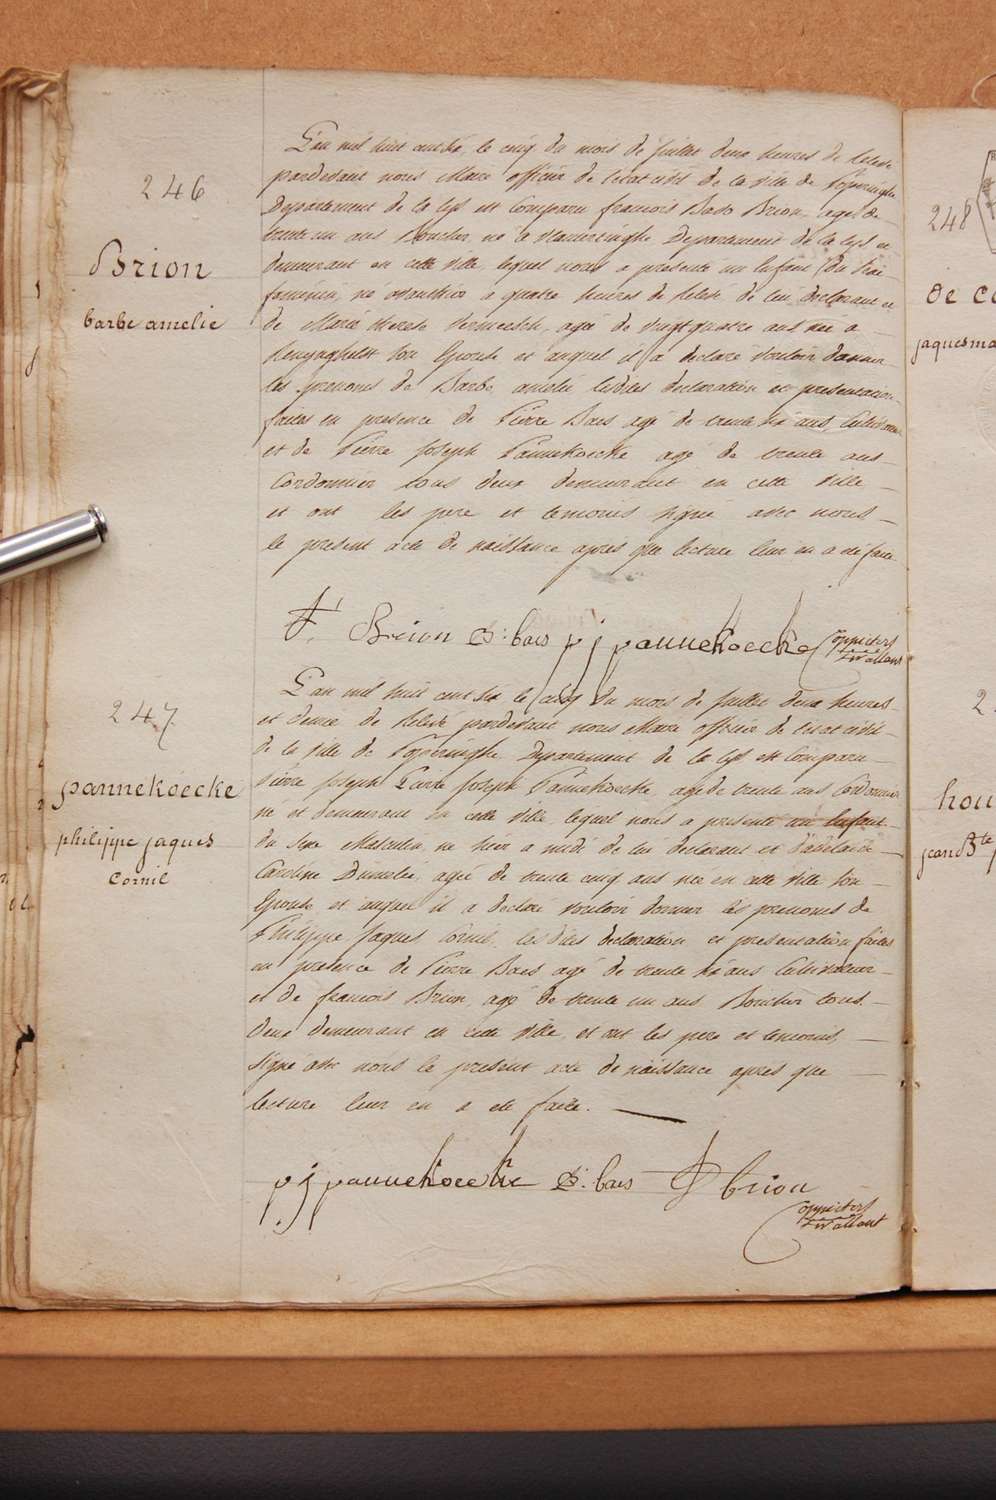 246
Brion
barbe amelie
L'an mil huit cent six le cinq du mois de Juillet deux heures de Relevé
pardevant nous Maire officier de l'etat civil de la ville de Poperinghe
Departement de la Lys est Comparu francois Bado Brion, agé de
trente un ans Boucher, né a Vlamertinghe Departement de la Lys et
demeurant en cette ville, lequel nous a presenté un Enfant du Sexe
feminin, né a quatre heures de Relevé de lui declarant et
de Marie therese Vermeesch, agée de vingt quatre ans née a
Renynghelst Son Epouse et auquel il a declaré vouloir donner
les prenoms de Barbe amelie lesdites declaration et presentation
faites en presence de Pierre Baes agé de trente six ans, Cultivateur
et de Pierre Joseph Pannekoecke agé de trente ans
Cordonnier tous deux demeurant en cette ville
et ont les pere et temoins signé avec nous
le present acte de naissance apres que lecture leur en a eté faite
f. Brion P: baes p j pannekoecke
247
pannekoecke
philippe jaques
Cornil
L'an mil huit cent six le cinq du mois de Juillet deux heures
et demie de Relevé pardevant nous Maire officier de l'etat civil
de la ville de Poperinghe Departement de la Lys est Comparu
Pierre Joseph Joseph Pannekoecke, agé de trente ans Cordonnier
né et demeurant en cette ville, lequel nous a presenté un Enfant
du Sexe Masculin, né hier a midi de lui declarant et d'adelaide
Caroline agée de trente cinq ans née en cette ville Son
Epouse et auquel il a declaré vouloir donner les prenoms de
Philippe Jaques Cornil, lesdites declaration et presentation faites
en presence de Pierre Baes agé de trente six ans Cultivateur
et de francois Brion, agé de trente un ans Boucher tous
deux demeurant en cette ville, et ont les pere et temoins
signé avec nous le present acte de naissance apres que
lecture leur en a eté faite.
p j pannekoecke P: baes f brion
248
de c
jaques ma
2
hou
jean Bte